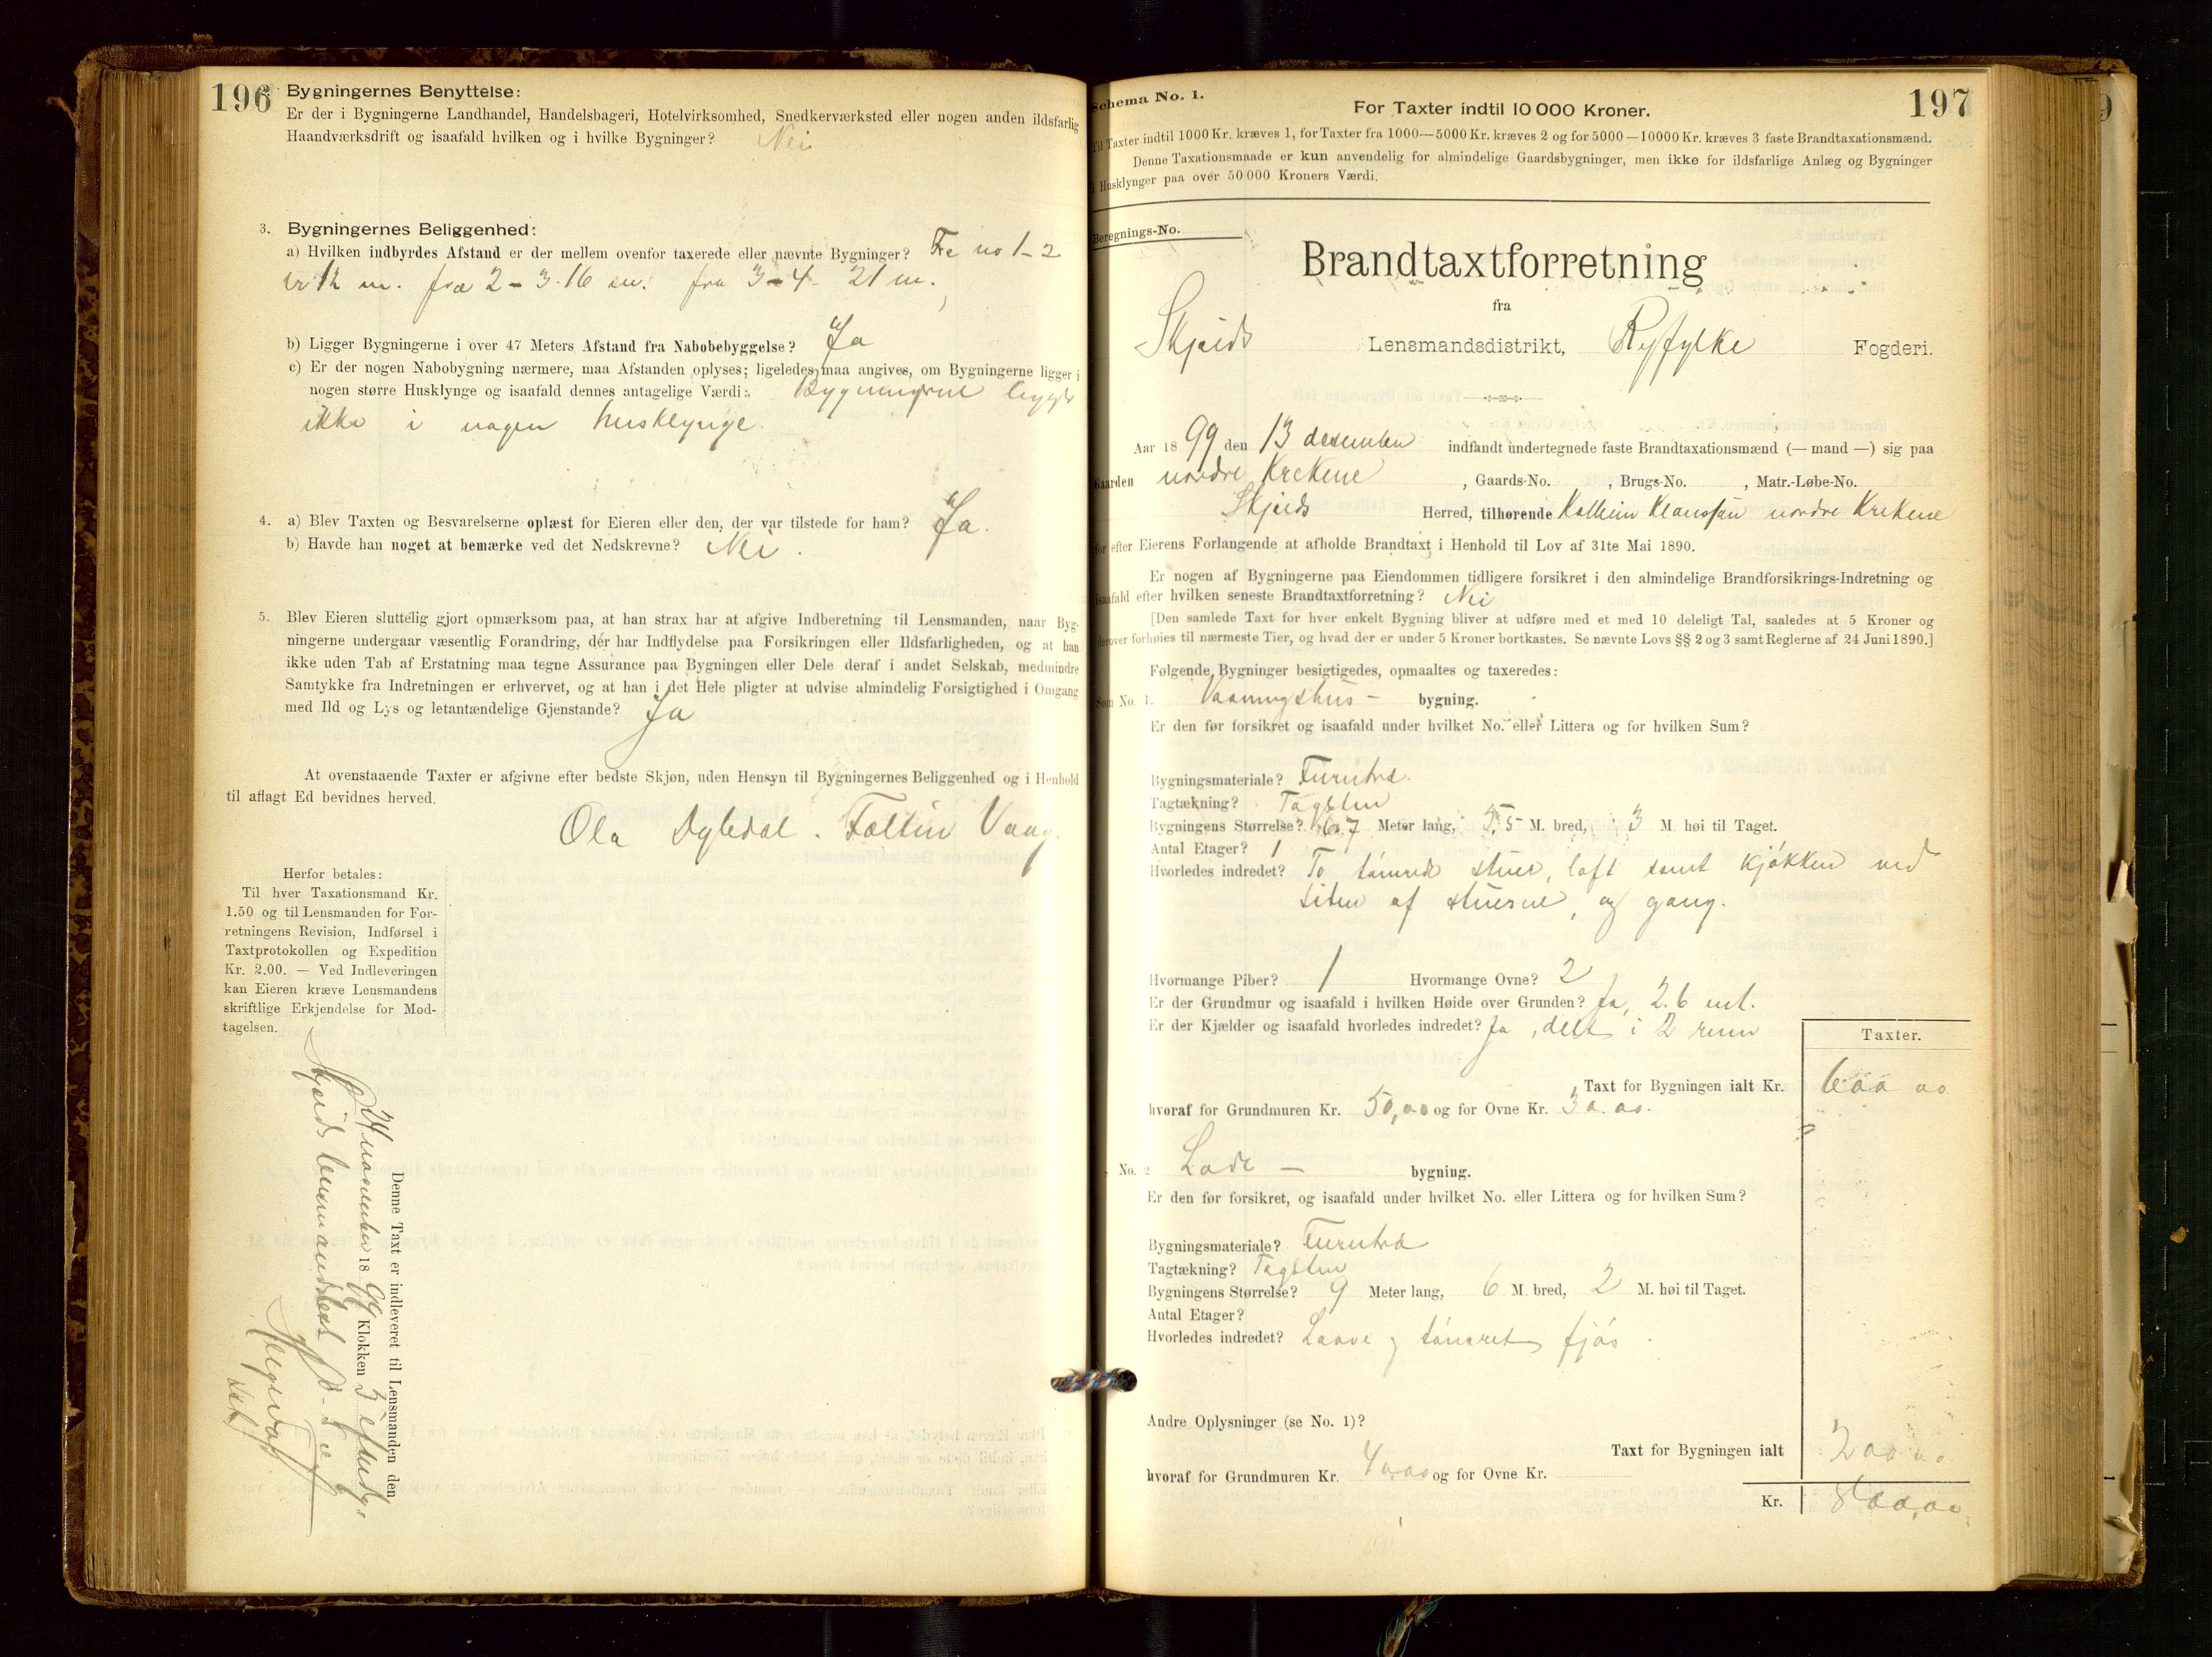 196
Bygningernes Benyttelse:
Er der i Bygningerne Landhandel, Handelsbageri, Hotelvirksomhed, Snedkerværksted eller nogen anden ildsfarlig
Haandværksdrift og isaafald hvilken og i hvilke Bygninger? Nei
3. Bygningernes Beliggenhed:
a) Hvilken indbyrdes Afstand er der mellem ovenfor taxerede eller nævnte Bygninger? Fra no 1-2
er 12 m. fra 2-3. 16 m. fra 3-4- 21 m.
b) Ligger Bygningerne i over 47 Meters Afstand fra Nabobebyggelse? Ja
c) Er der nogen Nabobygning nærmere, maa Afstanden oplyses; ligeledes maa angives, om Bygningerne ligger i
nogen større Husklynge og isaafald dennes antagelige Værdi: Bygningerne ligger
ikke i nogen husklynge.
4. a) Blev Taxten og Besvarelserne oplæst for Eieren eller den, der var tilstede for ham? Ja.
b) Havde han noget at bemærke ved det Nedskrevne? Nei.
5. Blev Eieren sluttelig gjort opmærksom paa, at han strax har at afgive Indberetning til Lensmanden, naar Byg-
ningerne undergaar væsentlig Forandring, der har Indflydelse paa Forsikringen eller Ildsfarligheden, og at han
ikke uden Tab af Erstatning maa tegne Assurance paa Bygningen eller Dele deraf i andet Selskab, medmindre
Samtykke fra Indretningen er erhvervet, og at han i det Hele pligter at udvise almindelig Forsigtighed i Omgang
med Ild og Lys og letantændelige Gjenstande? Ja
At ovenstaaende Taxter er afgivne efter bedste Skjøn, uden Hensyn til Bygningernes Beliggenhed og i Henhold
til aflagt Ed bevidnes herved.
Ola Dybdal. Faltin Vaag.
Herfor betales:
Til hver Taxationsmand Kr.
1.50 og til Lensmanden for For-
retningens Revision, Indførsel i
Taxtprotokollen og Expedition
Kr. 2.00. — Ved Indleveringen
kan Eieren kræve Lensmandens
skriftlige Erkjendelse for Mod-
tagelsen.
Denne Taxt er indleveret til Lensmanden den
november 1899 Klokken 3 efterm.
Skjolds lensmandsbest.
197
Schema No. 1.
For Taxter indtil 10 000 Kroner.
Til Taxter indtil 1000 Kr. kræves 1, for Taxter fra 1000—5000 Kr. kræves 2 og for 5000—10000 Kr. kræves 3 faste Brandtaxationsmænd.
Denne Taxationsmaade er kun anvendelig for almindelige Gaardsbygninger, men ikke for ildsfarlige Anlæg og Bygninger
i Husklynger paa over 50 000 Kroners Værdi.
Beregnings-No.
Brandtaxtforretning
fra
Skjolds Lensmandsdistrikt, Ryfylke Fogderi.
Aar 1899 den 13 desember indfandt undertegnede faste Brandtaxationsmænd (— mand —) sig paa
Gaarden nordre Krekene, Gaards-No. , Brugs-No. , Matr.-Løbe-No.
Skjolds Herred, tilhørende Klaussøn nordre Krekene
for efter Eierens Forlangende at afholde Brandtaxt i Henhold til Lov af 31te Mai 1890.
Er nogen af Bygningerne paa Eiendommen tidligere forsikret i den almindelige Brandforsikrings-Indretning og
isaafald efter hvilken seneste Brandtaxtforretning? Nei
[Den samlede Taxt for hver enkelt Bygning bliver at udføre med et med 10 deleligt Tal, saaledes at 5 Kroner og
derover forhøies til nærmeste Tier, og hvad der er under 5 Kroner bortkastes. Se nævnte Lovs §§ 2 og 3 samt Reglerne af 24 Juni 1890.]
Følgende Bygninger besigtigedes, opmaaltes og taxeredes:
Som No. 1. Vaaningshus - bygning.
Er den før forsikret og isaafald under hvilket No. eller Littera og for hvilken Sum?
Bygningsmateriale? Furutræ.
Tagtækning? Tagsten
Bygningens Størrelse? 7 Meter lang, 5,5 M. bred, 3 M. høi til Taget.
Antal Etager? 1
Hvorledes indredet? To tømrede stuer, loft samt kjøkken ved
siden af stuerne, og gang.
Hvormange Piber? 1 Hvormange Ovne? 2
Er der Grundmur og isaafald i hvilken Høide over Grunden? Ja, 2.6 mt.
Er der Kjælder og isaafald hvorledes indredet? Ja, delt i 2 rum
Taxter.
Taxt for Bygningen ialt Kr. 600 00
hvoraf for Grundmuren Kr. 50,00 og for Ovne Kr. 30.00.
No. 2 Lade — bygning.
Er den før forsikret, og isaafald under hvilket No. eller Littera og for hvilken Sum?
Bygningsmateriale? Furutræ
Tagtækning? Tagsten
Bygningens Størrelse? 9 Meter lang, 6 M. bred, 2 M. høi til Taget.
Antal Etager?
Hvorledes indredet? Laave og tømret fjøs
Andre Oplysninger (se No. 1)?
Taxt for Bygningen ialt 200 00
hvoraf for Grundmuren Kr. 40.00 og for Ovne Kr.
Kr. 800,00